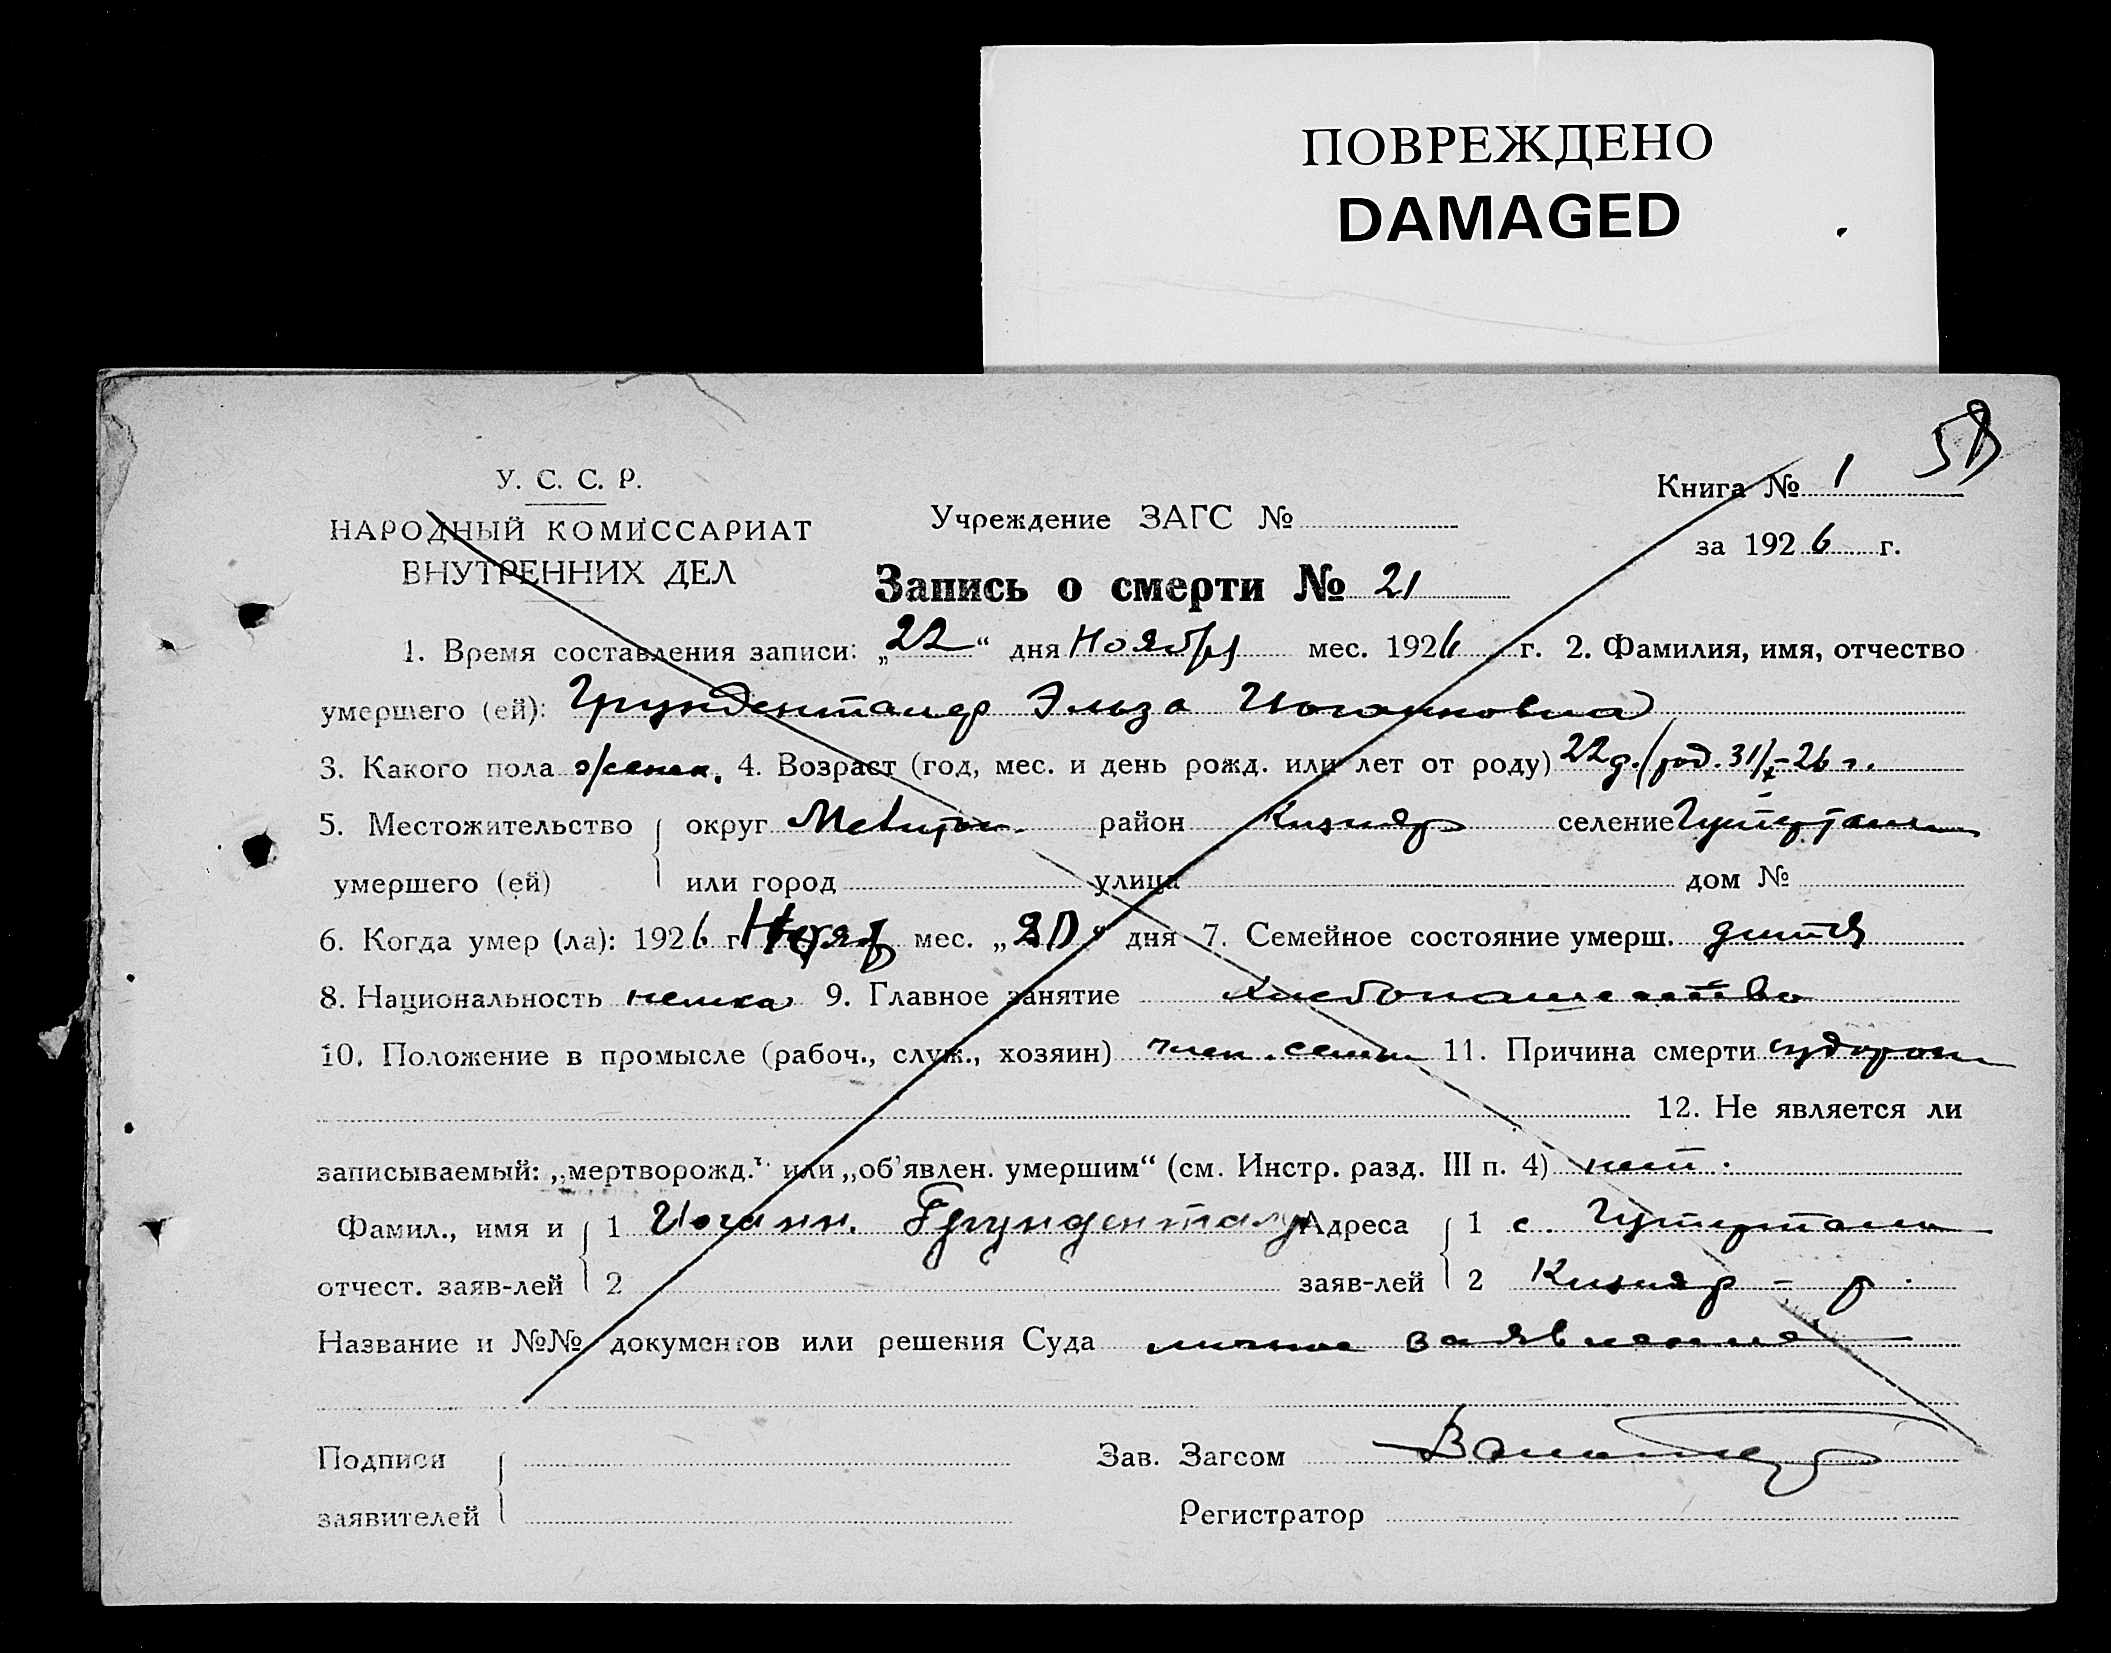 ПОВРЕЖДЕНО
DAMAGED
58
У. С. С. Р.
НАРОДНЫЙ КОМИССАРИАТ
ВНУТРЕННИХ ДЕЛ
Учреждение ЗАГС №
Книга № 1
за 1926 г.
Запись о смерти № 21
1. Время составления записи: „22“ дня Ноября мес. 1926 г. 2. Фамилия, имя, отчество
умершего (ей): Грунденталер Эльза Иогановна
3. Какого пола женск. 4. Возраст (год, мес. и день рожд. или лет от роду) 22 д. (род. 31/X-26 г.
5. Местожительство округ Мелитоп. район Кизияр селение
умершего (ей) или город улица дом №
6. Когда умер (ла): 1926 г. Нояб мес. „20“ дня 7. Семейное состояние умерш. дитя
8. Национальность немка 9. Главное занятие хлебопашество
10. Положение в промысле (рабоч., служ., хозяин) член семьи 11. Причина смерти судороги
12. Не является ли
записываемый: „мертворожд.“ или „об'явлен. умершим“ (см. Инстр. разд. III п. 4) нет.
Фамил., имя и 1 Иоганн. Грунденталер Адреса 1 с.
отчест. заяв-лей 2 заяв-лей 2 Кизияр - р.
Название и №№ документов или решения Суда личное заявление
Подписи Зав. Загсом
заявителей Регистратор